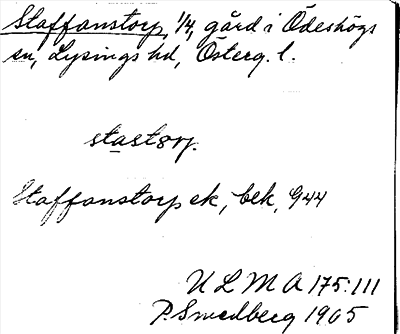 Staffanstorp, 1/4, gård i Ödeshögs
sn, Lysings hd, Österg. l.
stastorp.
Staffanstorp ek, bek, G44
U L M A 175:111
P. Swedberg 1905